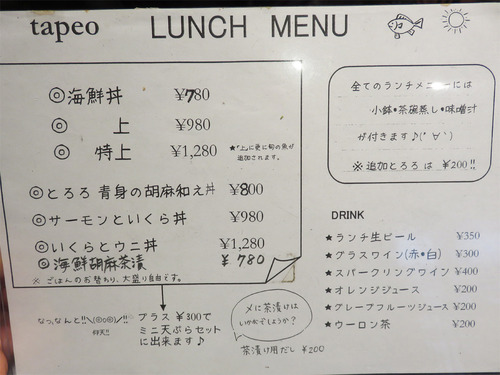 tapeo LUNCH MENU
◎海鮮丼 ¥780
◎ 上 ¥980
◎ 特上 ¥1,280 ★「上」に更に旬の魚が
追加されます。
◎とろろ 青身の胡麻和え丼 ¥800
◎サーモンといくら丼 ¥980
◎いくらとウニ丼 ¥1,280
◎海鮮胡麻茶漬 ¥780
※ ごはんのお替わり、大盛り自由です。
全てのランチメニューには
小鉢・茶碗蒸し・味噌汁
が付きます♪(*´∀`)
※追加とろろは ¥200!!
DRINK
★ランチ生ビール ¥350
★グラスワイン(赤・白) ¥300
★スパークリングワイン ¥400
★オレンジジュース ¥200
★グレープフルーツジュース ¥200
★ウーロン茶 ¥200
なっ、なんと!!
仰天!!
プラス ¥300で
ミニ天ぷらセット
に出来ます♪
〆に茶漬けは
いかがでしょうか?
茶漬け用だし ¥200